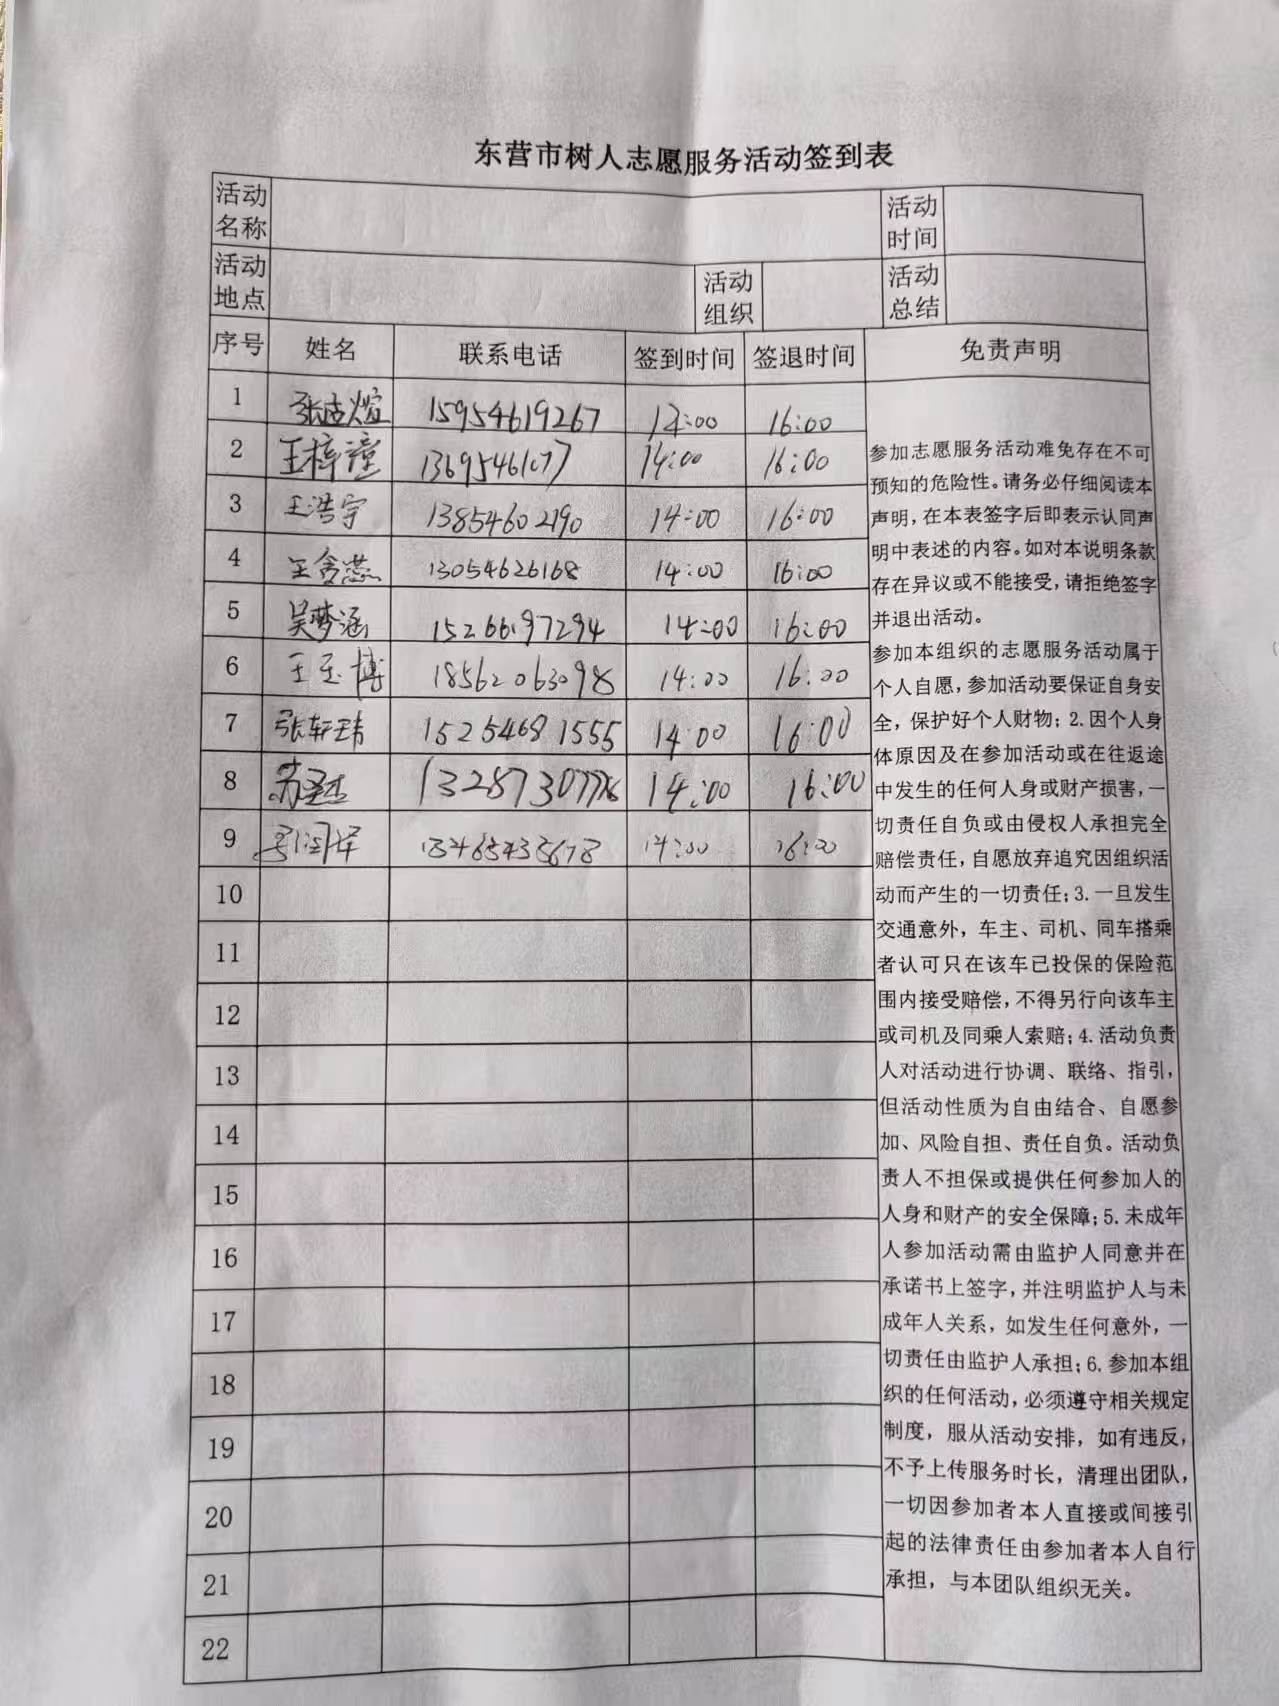 东营市树人志愿服务活动签到表
活动名称 活动时间
活动地点 活动组织 活动总结
序号 姓名 联系电话 签到时间 签退时间 免责声明
1 15954619267 16:00
2 王梓潼 14:00 16:00
3 王浩宇 13854602190 14:00 16:00
4 13054626168 14:00 16:00
5 吴梦涵 15266197294 14:00 16:00
6 王玉博 18562063098 14:00 16:00
7 张轩玮 15254681555 14:00 16:00
8 14:00 16:00
9 14:00 16:00
10
11
12
13
14
15
16
17
18
19
20
21
22
参加志愿服务活动难免存在不可
预知的危险性。请务必仔细阅读本
声明,在本表签字后即表示认同声
明中表述的内容。如对本说明条款
存在异议或不能接受,请拒绝签字
并退出活动。
参加本组织的志愿服务活动属于
个人自愿,参加活动要保证自身安
全,保护好个人财物;2.因个人身
体原因及在参加活动或在往返途
中发生的任何人身或财产损害,一
切责任自负或由侵权人承担完全
赔偿责任,自愿放弃追究因组织活
动而产生的一切责任;3.一旦发生
交通意外,车主、司机、同车搭乘
者认可只在该车已投保的保险范
围内接受赔偿,不得另行向该车主
或司机及同乘人索赔;4.活动负责
人对活动进行协调、联络、指引,
但活动性质为自由结合、自愿参
加、风险自担、责任自负。活动负
责人不担保或提供任何参加人的
人身和财产的安全保障;5.未成年
人参加活动需由监护人同意并在
承诺书上签字,并注明监护人与未
成年人关系,如发生任何意外,一
切责任由监护人承担;6.参加本组
织的任何活动,必须遵守相关规定
制度,服从活动安排,如有违反,
不予上传服务时长,清理出团队,
一切因参加者本人直接或间接引
起的法律责任由参加者本人自行
承担,与本团队组织无关。